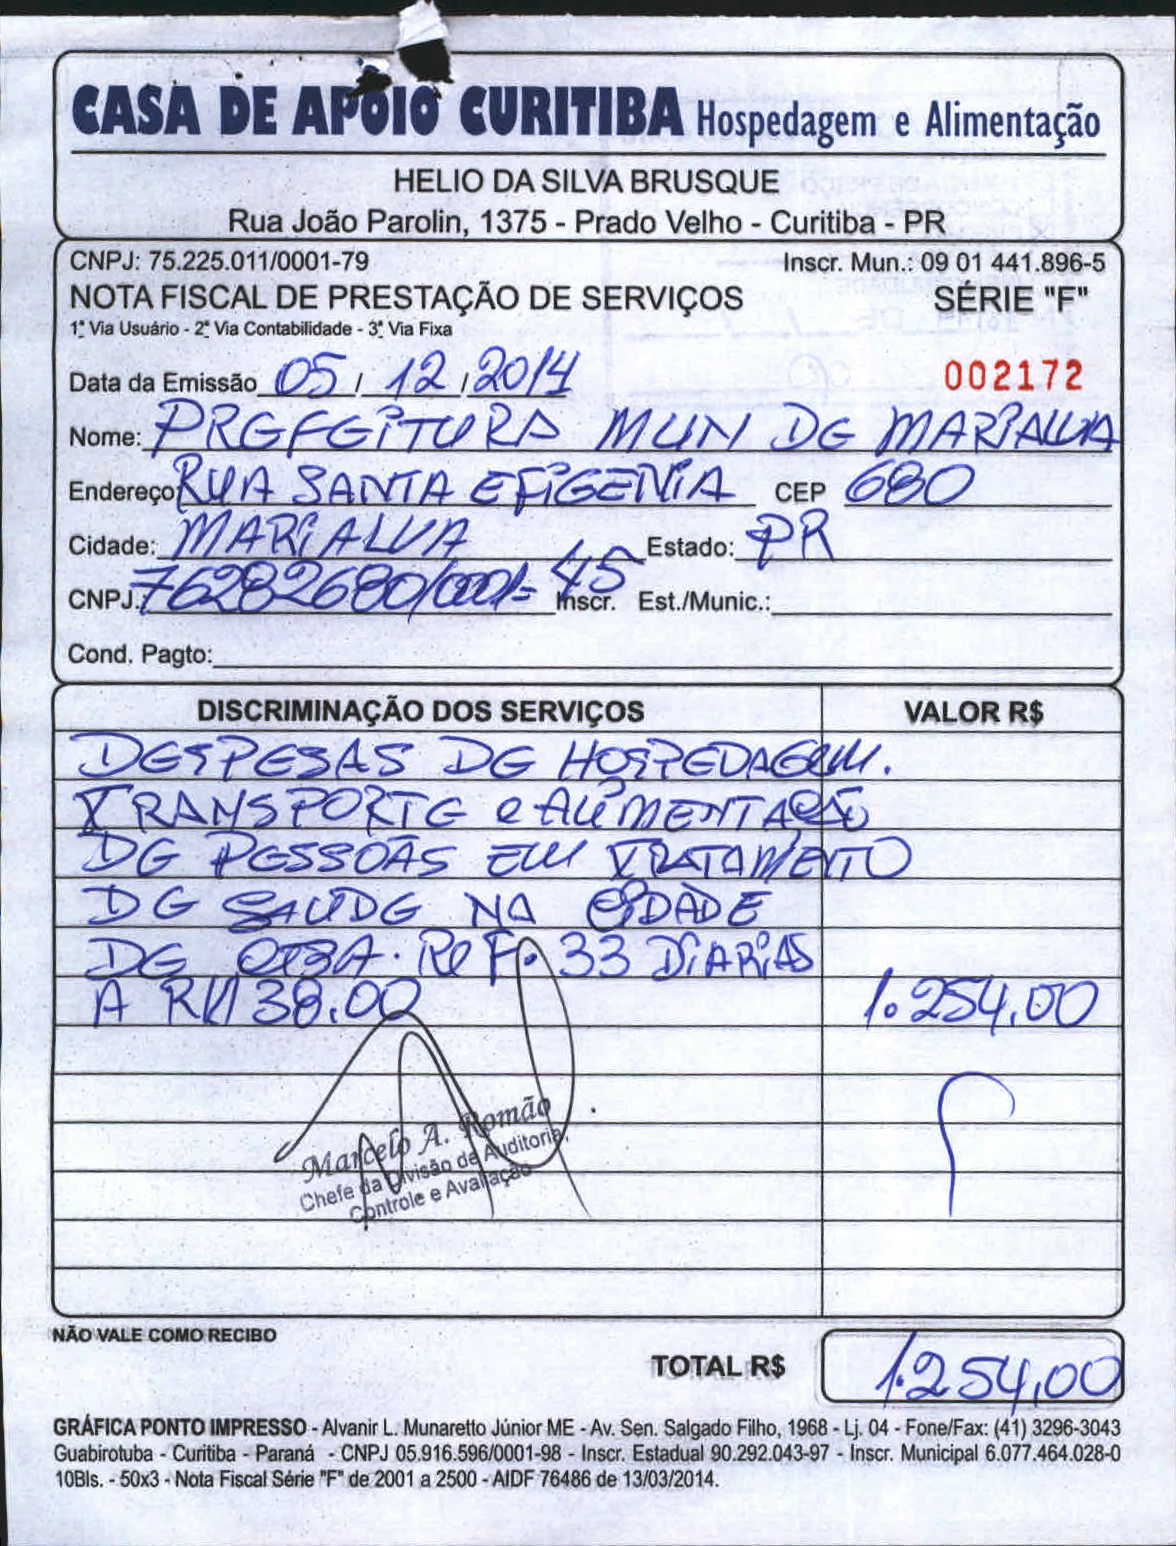 CASA DE APOIO CURITIBA Hospedagem e Alimentação
HELIO DA SILVA BRUSQUE
Rua João Parolin, 1375 - Prado Velho - Curitiba - PR
CNPJ: 75.225.011/0001-79 Inscr. Mun.: 09 01 441.896-5
NOTA FISCAL DE PRESTAÇÃO DE SERVIÇOS SÉRIE "F"
1ª Via Usuário - 2ª Via Contabilidade - 3ª Via Fixa
Data da Emissão 05 / 12 / 2014 002172
Nome: PREFEITURA MUN DE MARIALVA
Endereço RUA SANTA EFIGENIA CEP 680
Cidade: MARIALVA Estado: PR
CNPJ: 76282680/0001-45 Inscr. Est./Munic.:
Cond. Pagto:
DISCRIMINAÇÃO DOS SERVIÇOS VALOR R$
DESPESAS DE HOSPEDAGEM.
TRANSPORTE e ALIMENTAÇÃO
DE PESSOAS EM TRATAMENTO
DE SAUDE NA CIDADE
DE CTBA. REF. 33 DIARIAS
A R$ 38,00 1.254,00
Marcelo A. Romão
Chefe da Divisão de Auditoria,
Controle e Avaliação
NÃO VALE COMO RECIBO
TOTAL R$ 1.254,00
GRÁFICA PONTO IMPRESSO - Alvanir L. Munaretto Júnior ME - Av. Sen. Salgado Filho, 1968 - Lj. 04 - Fone/Fax: (41) 3296-3043
Guabirotuba - Curitiba - Paraná - CNPJ 05.916.596/0001-98 - Inscr. Estadual 90.292.043-97 - Inscr. Municipal 6.077.464.028-0
10Bls. - 50x3 - Nota Fiscal Série "F" de 2001 a 2500 - AIDF 76486 de 13/03/2014.